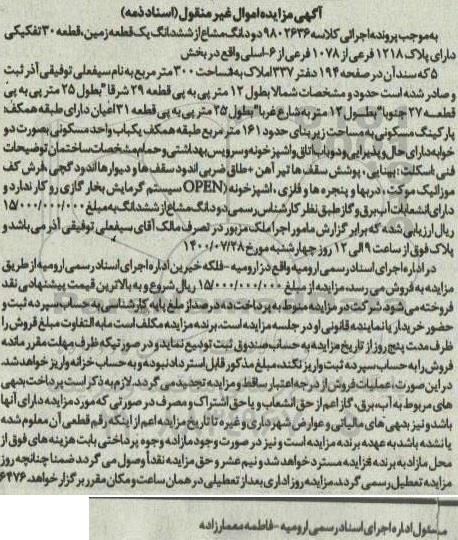 آگهی مزایده اموال غیر منقول (اسناد ذمه)
به موجب پرونده اجرائی کلاسه ۹۸۰۲۶۳۶ دو دانگ مشاع از ششدانگ یک قطعه زمین، قطعه ۳۰ تفکیکی
دارای پلاک ۱۲۱۸ فرعی از ۱۰۷۸ فرعی از ۶-اصلی واقع در بخش
۵ که سند آن در صفحه ۱۹۴ دفتر ۳۳۷ املاک به مساحت ۳۰۰ متر مربع به نام سیفعلی توفیقی آذر ثبت
و صادر شده است حدود و مشخصات شمالا بطول ۱۲ متر پی به پی قطعه ۲۹ شرقا "بطول ۲۵ متر پی به پی
قطعه ۲۷ جنوبا "بطول ۱۲ متر به شارع غربا" بطول ۲۵ متر پی به پی قطعه ۳۱ اعیان دارای طبقه همکف:
پارکینگ مسکونی به مساحت زیر بنای حدود ۱۶۱ متر مربع طبقه همکف یکباب واحد مسکونی بصورت دو
خوابه دارای حال و پذیرایی و دو باب اتاق و اشپزخونه و سرویس بهداشتی و حمام مشخصات ساختمان توضیحات
فنی: اسکلت: بینایی، پوشش سقف ها تیر آهن +طاق ضربی اندود سقف ها و دیوارها اندود گچی، فرش کف
موزائیک موکت، دربها و پنجره ها و فلزی، اشپزخونه (OPEN سیستم گرمایش بخار گازی رو کار ندارد و
دارای انشعابات آب، برق و گاز طبق نظر کارشناس رسمی دو دانگ مشاع از ششدانگ به مبلغ ۱۵/۰۰۰/۰۰۰/۰۰۰
ریال ارزیابی شده که برابر گزارش مامور اجرا ملک مزبور در تصرف مالک آقای سیفعلی توفیقی آذر می باشد و
پلاک فوق از ساعت ۹ الی ۱۲ روز چهارشنبه مورخ ۱۴۰۰/۰۷/۲۸
در اداره اجرای اسناد رسمی ارومیه واقع در ارومیه - فلکه خیرین اداره اجرای اسناد رسمی ارومیه از طریق
مزایده به فروش می رسد. مزایده از مبلغ ۱۵/۰۰۰/۰۰۰/۰۰۰ ریال شروع و به بالاترین قیمت پیشنهادی نقد
فروخته می شود. شرکت در مزایده منوط به پرداخت ده درصد از مبلغ پایه کارشناسی به حساب سپرده ثبت و
حضور خریدار یا نماینده قانونی او در جلسه مزایده است. برنده مزایده مکلف است مابه التفاوت مبلغ فروش را
ظرف مدت پنج روز از تاریخ مزایده به حساب صندوق ثبت تودیع نماید و در صورتیکه ظرف مهلت مقرر مانده
فروش را به حساب سپرده ثبت واریز نکند، مبلغ مذکور قابل استرداد نبوده و به حساب خزانه واریز خواهد شد.
در این صورت، عملیات فروش از درجه اعتبار ساقط و مزایده تجدید می گردد. لازم به ذکر است پرداخت بدهی
های مربوط به آب، برق، گاز اعم از حق انشعاب و یا حق اشتراک و مصرف در صورتی که مورد مزایده دارای آنها
باشد و نیز بدهی های مالیاتی و عوارض شهرداری و غیره تا تاریخ مزایده اعم از اینکه رقم قطعی آن معلوم شده
یا نشده باشد به عهده برنده مزایده است و نیز در صورت وجود مازاد وجوه پرداختی بابت هزینه های فوق از
محل مازاد به برنده مزایده مسترد خواهد شد و نیم عشر و حق مزایده نقداً وصول می گردد ضمنا چنانچه روز
مزایده تعطیل رسمی گردد، مزایده روز اداری بعد از تعطیلی در همان ساعت و مکان مقرر برگزار خواهد ۶۴۷۶
مسئول اداره اجرای اسناد رسمی ارومیه - فاطمه معمارزاده